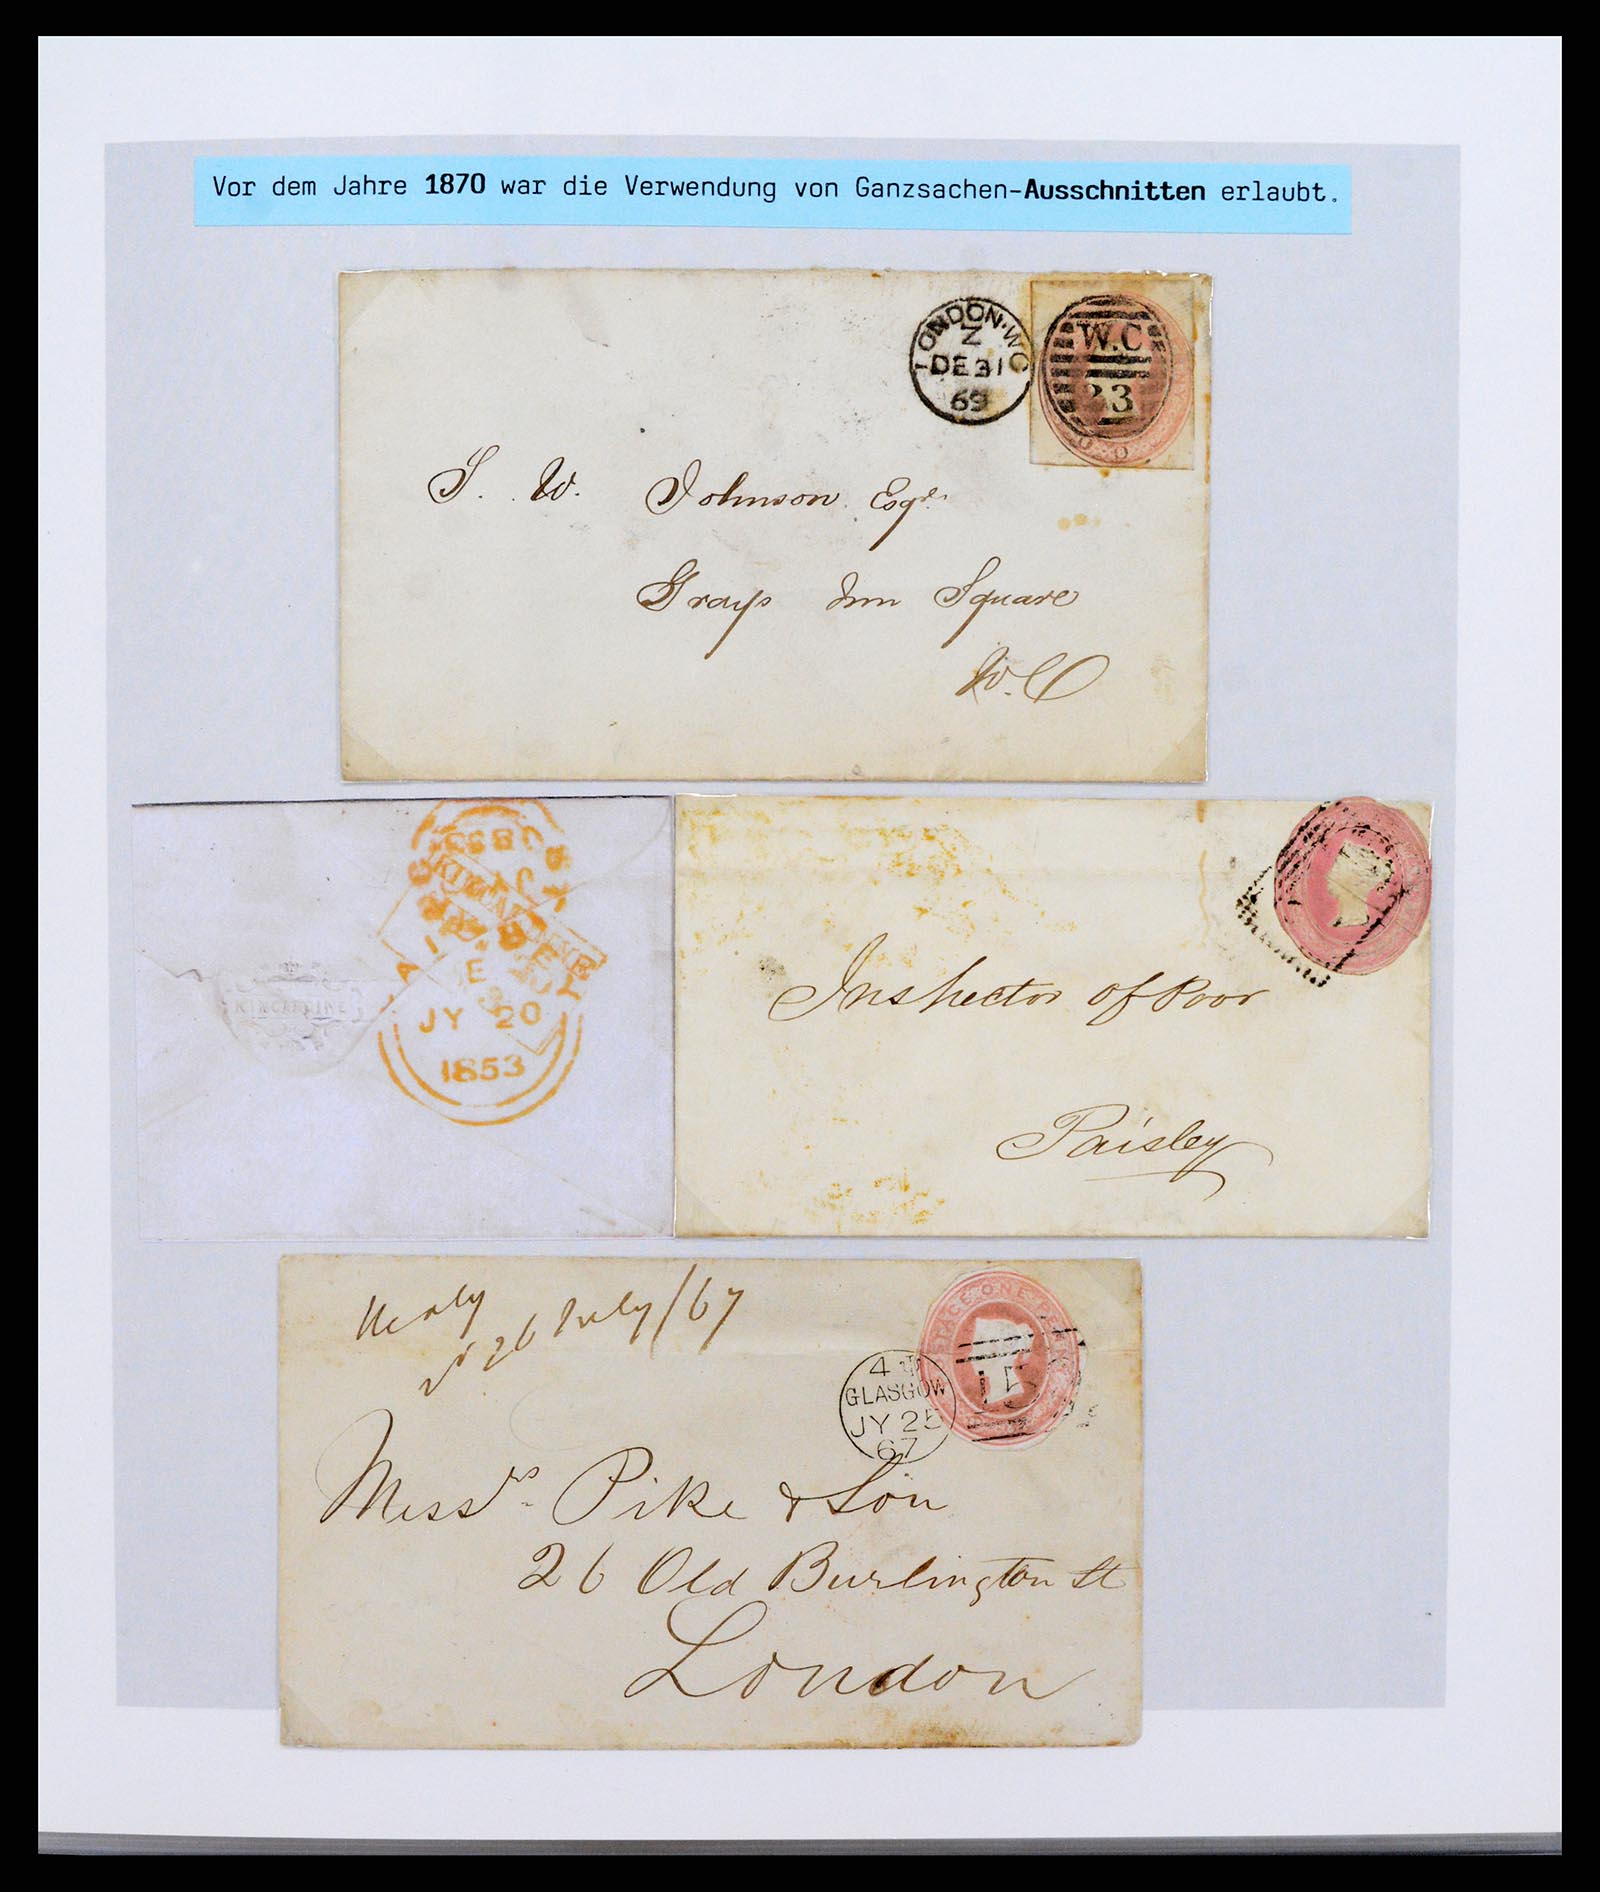 Vor dem Jahre 1870 war die Verwendung von Ganzsachen-Ausschnitten erlaubt.
LONDON·W.C
Z
DE 31
69
W.C
23
S. W. Johnson Esqr.
Grays Inn Square
W.C
E
JY 20
1853
KINCARDINE
Inspector of Poor
Paisley
26 July/67
STAGE ONE PENNY
4
GLASGOW
JY 25
67
15
Messrs. Pike & Son
26 Old Burlington St
London